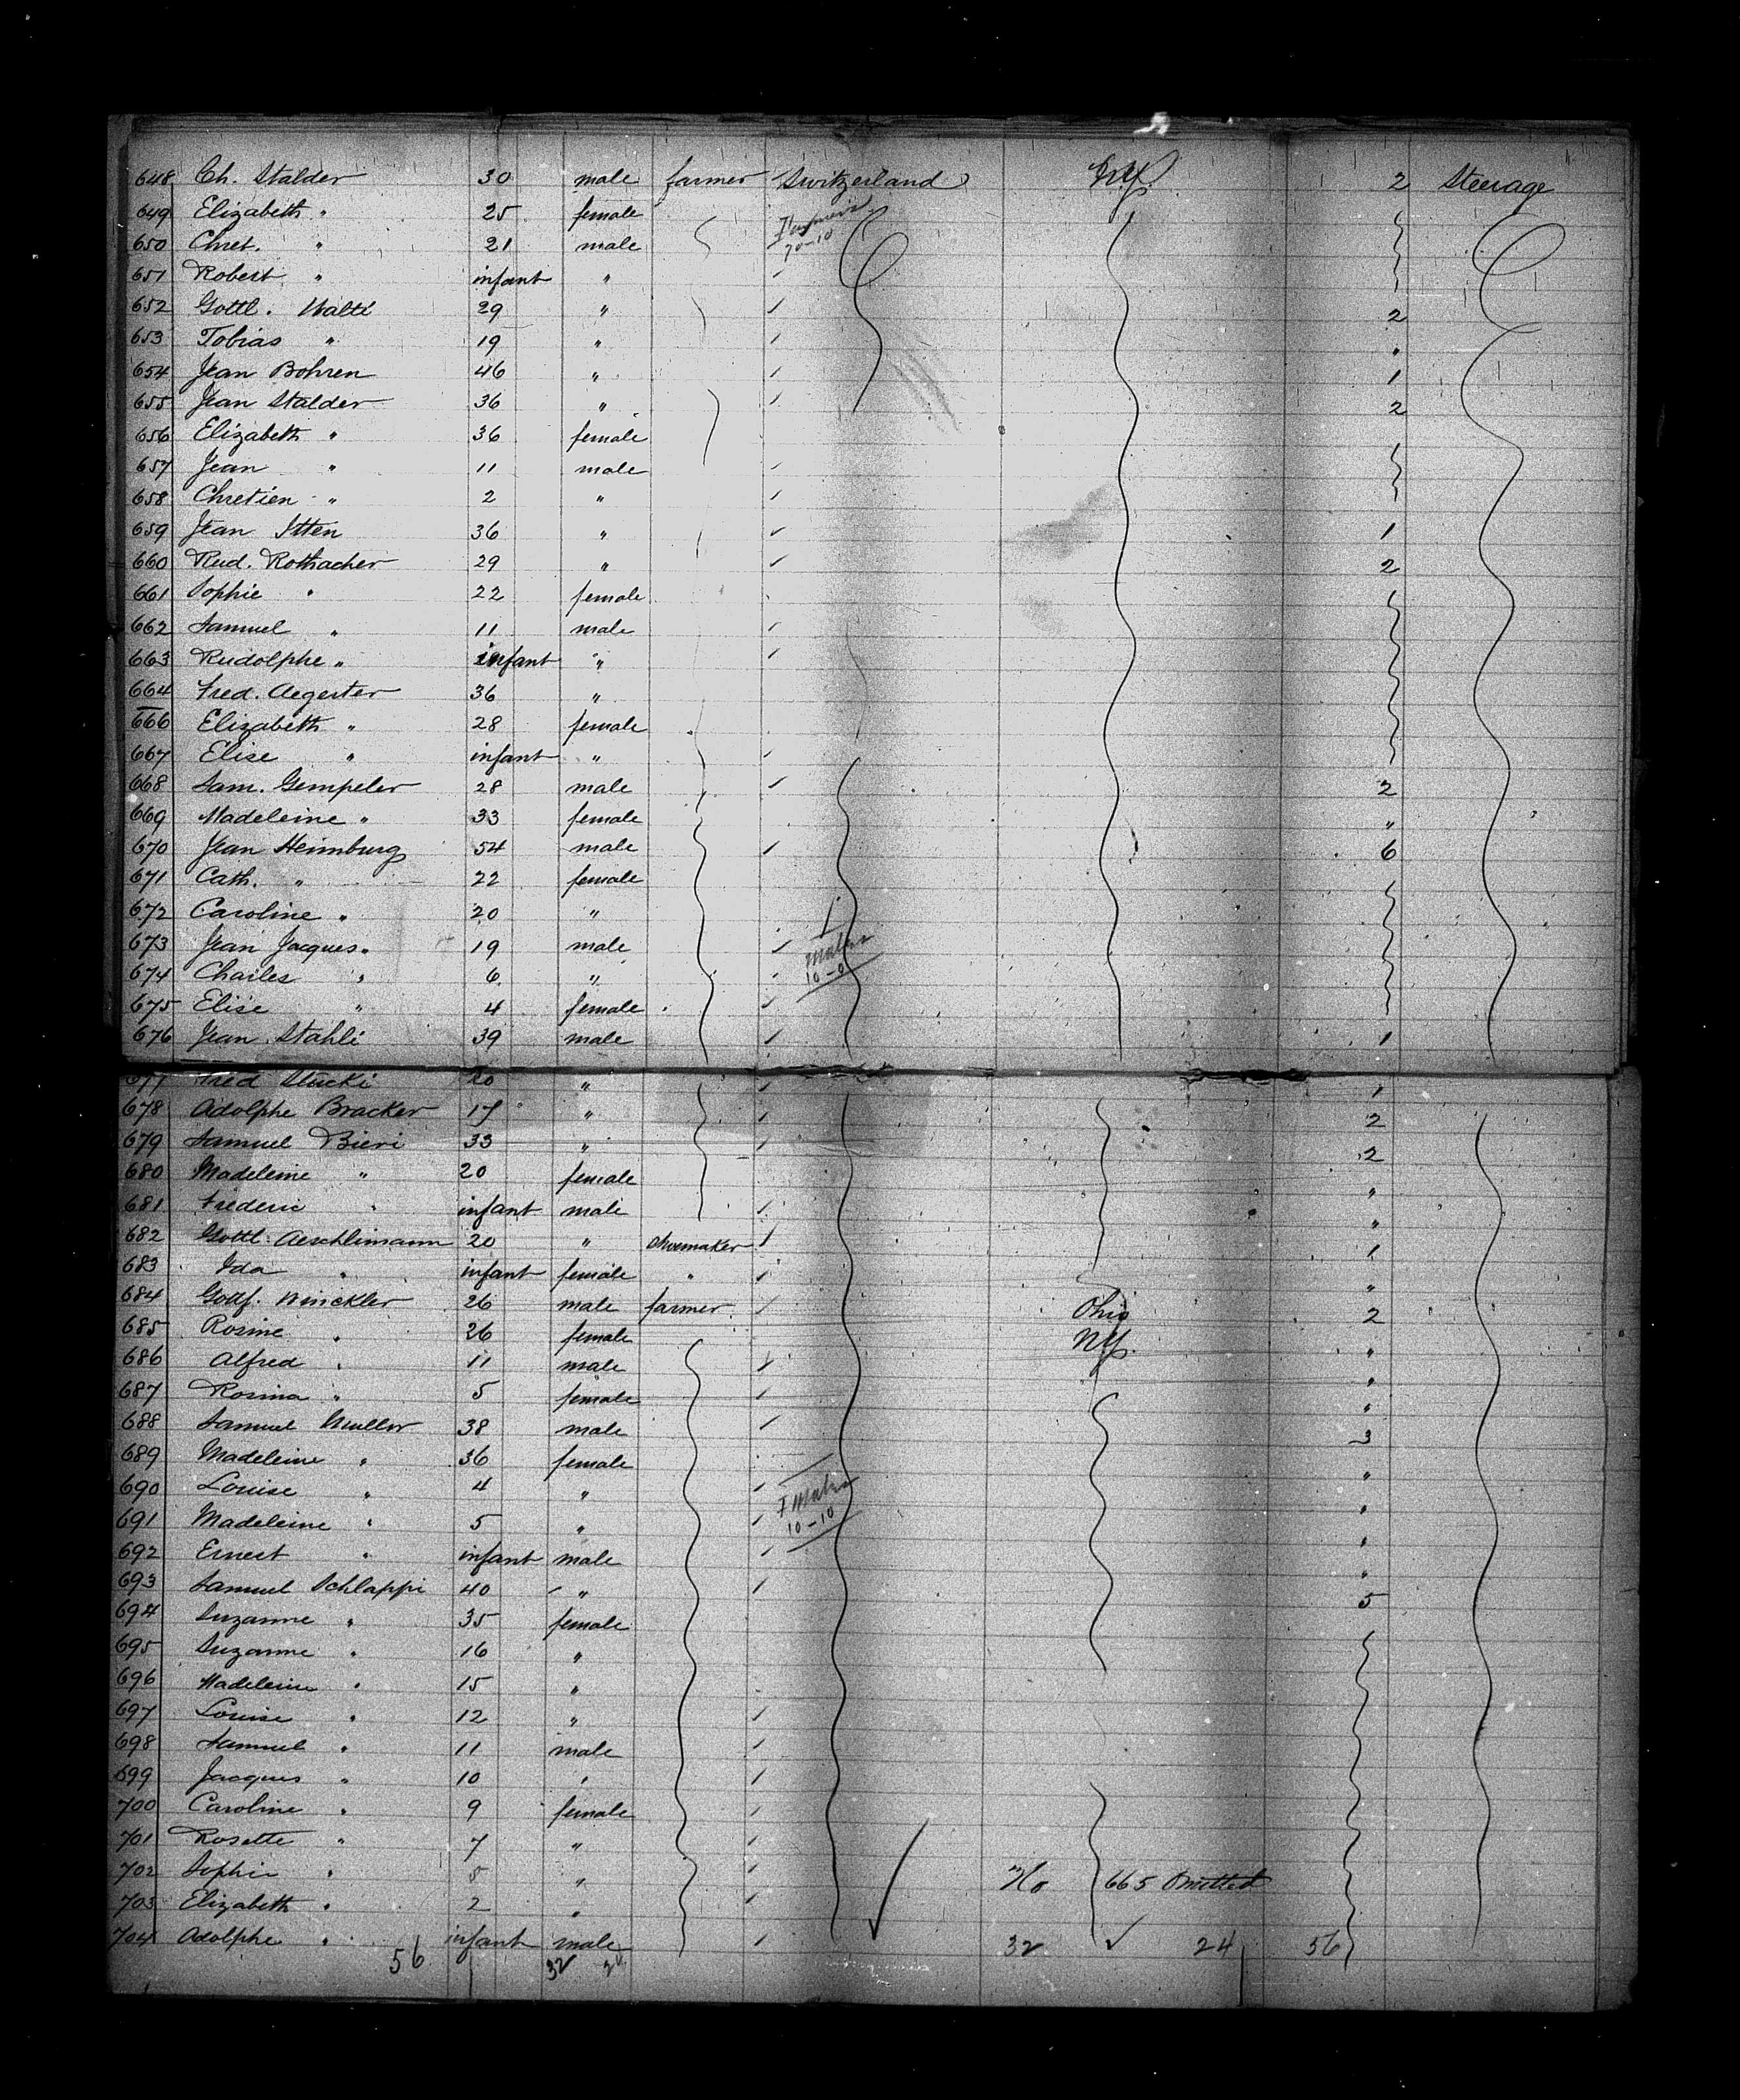 648 Ch. Stalder 30 male farmer Switzerland N.Y. 2 Steerage
649 Elizabeth " 25 female
650 Chret. " 21 male 70-10
651 Robert " infant "
652 Gottl. Walti 29 " 2
653 Tobias " 19 " "
654 Jean Bohren 46 " 1
655 Jean Stalder 36 " 2
656 Elizabeth " 36 female
657 Jean " 11 male
658 Chretien " 2 "
659 Jean Itten 36 " 1
660 Rud. Rothacher 29 " 2
661 Sophie " 22 female
662 Samuel " 11 male
663 Rudolphe " infant "
664 Fred. Aegerter 36 "
666 Elizabeth " 28 female
667 Elise " infant "
668 Sam. Gempeler 28 male 2
669 Madeleine " 33 female "
670 Jean Heimburg 54 male 6
671 Cath. " 22 female
672 Caroline " 20 "
673 Jean Jacques " 19 male
674 Charles " 6 " 10-0
675 Elise " 4 female
676 Jean Stahli 39 male 1
677 Fred Stucki 20 " 1
678 Adolphe Bracker 17 " 2
679 Samuel Bieri 33 " 2
680 Madeleine " 20 female "
681 Frederic " infant male "
682 Gottl. Aeschlimann 20 " shoemaker 1
683 Ida " infant female " "
684 Gottf. Winckler 26 male farmer Ohio 2
685 Rosine " 26 female N.Y. "
686 Alfred " 11 male "
687 Rosina " 5 female "
688 Samuel Muller 38 male 3
689 Madeleine " 36 female "
690 Louise " 4 " "
691 Madeleine " 5 " 10-10 "
692 Ernest " infant male "
693 Samuel Schlappi 40 " 5
694 Suzanne " 35 female
695 Suzanne " 16 "
696 Madeleine " 15 "
697 Louise " 12 "
698 Samuel " 11 male
699 Jacques " 10 "
700 Caroline " 9 female
701 Rosette " 7 "
702 Sophie " 5 " No 665 Omitted
703 Elizabeth " 2 "
704 Adolphe " infant male 32 24 56
56 32